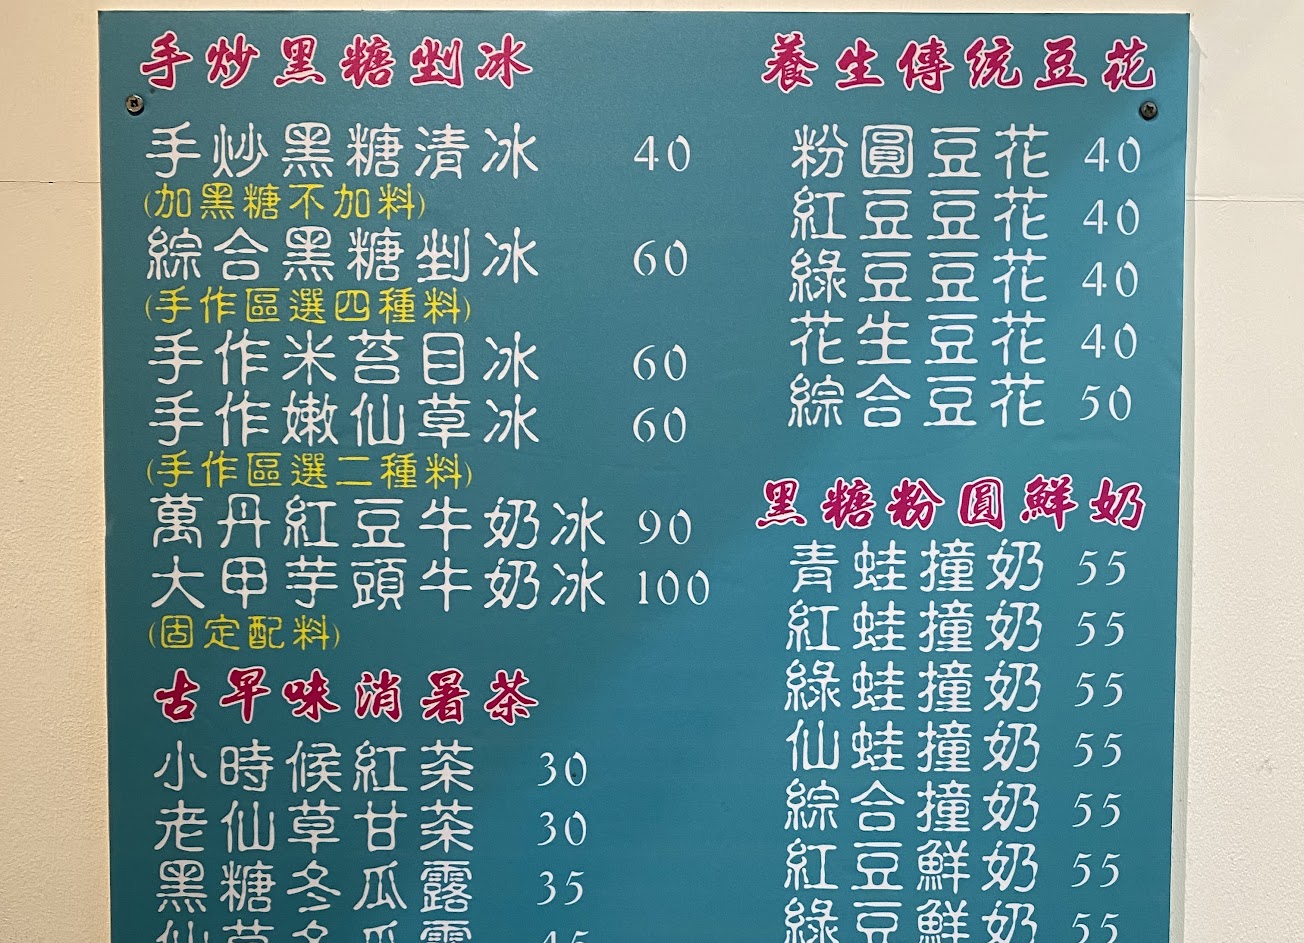 手炒黑糖剉冰
手炒黑糖清冰 40
(加黑糖不加料)
綜合黑糖剉冰 60
(手作區選四種料)
手作米苔目冰 60
手作嫩仙草冰 60
(手作區選二種料)
萬丹紅豆牛奶冰 90
大甲芋頭牛奶冰 100
(固定配料)
古早味消暑茶
小時候紅茶 30
老仙草甘茶 30
黑糖冬瓜露 35
仙草冬瓜露 45
養生傳統豆花
粉圓豆花 40
紅豆豆花 40
綠豆豆花 40
花生豆花 40
綜合豆花 50
黑糖粉圓鮮奶
青蛙撞奶 55
紅蛙撞奶 55
綠蛙撞奶 55
仙蛙撞奶 55
綜合撞奶 55
紅豆鮮奶 55
綠豆鮮奶 55